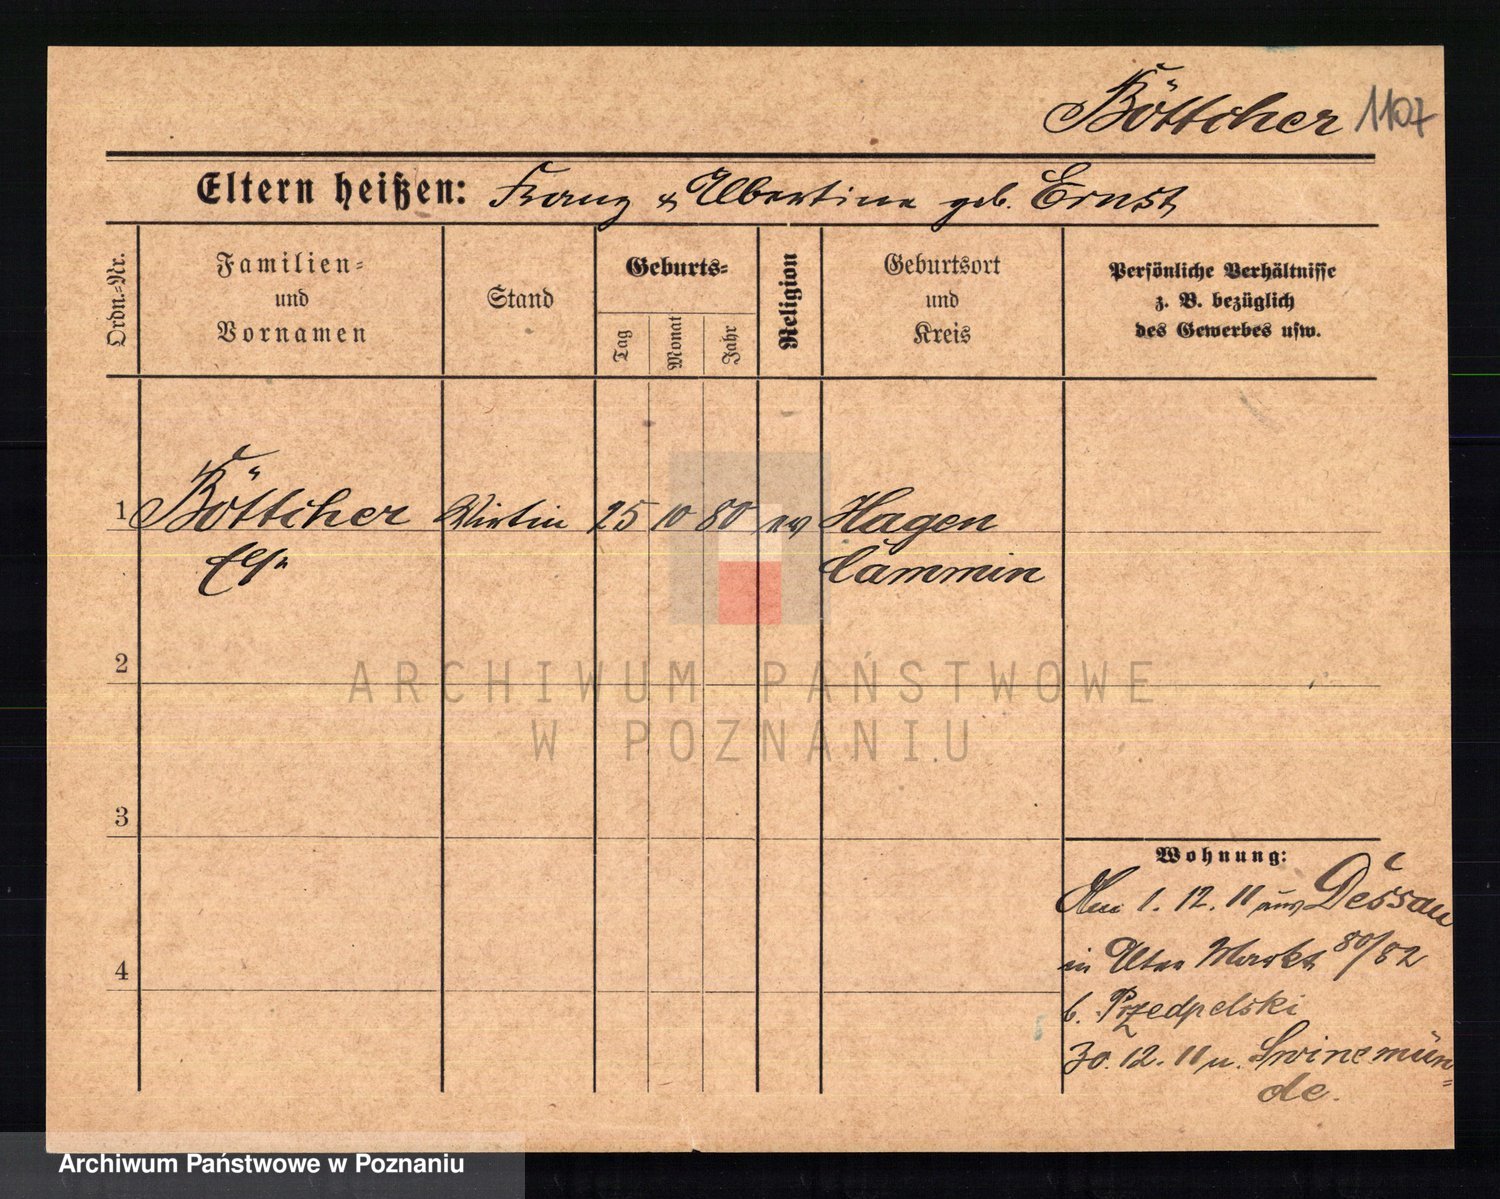 Böttcher 1107
Eltern heißen: Franz & Albertine geb. Ernst
Ordn.-Nr.
Familien-
und
Vornamen
Stand
Geburts-
Tag
Monat
Jahr
Religion
Geburtsort
und
Kreis
Persönliche Verhältnisse
z. B. bezüglich
des Gewerbes usw.
1 Böttcher Wirtin 25 10 80 ev Hagen
Cammin
2
3
4
Wohnung:
Am 1. 12. 11 aus Dessau
in Alter Markt 80/82
b. Przedpelski
30. 12. 11 n. Swinemün-
de.
ARCHIWUM PAŃSTWOWE
W POZNANIU
Archiwum Państwowe w Poznaniu